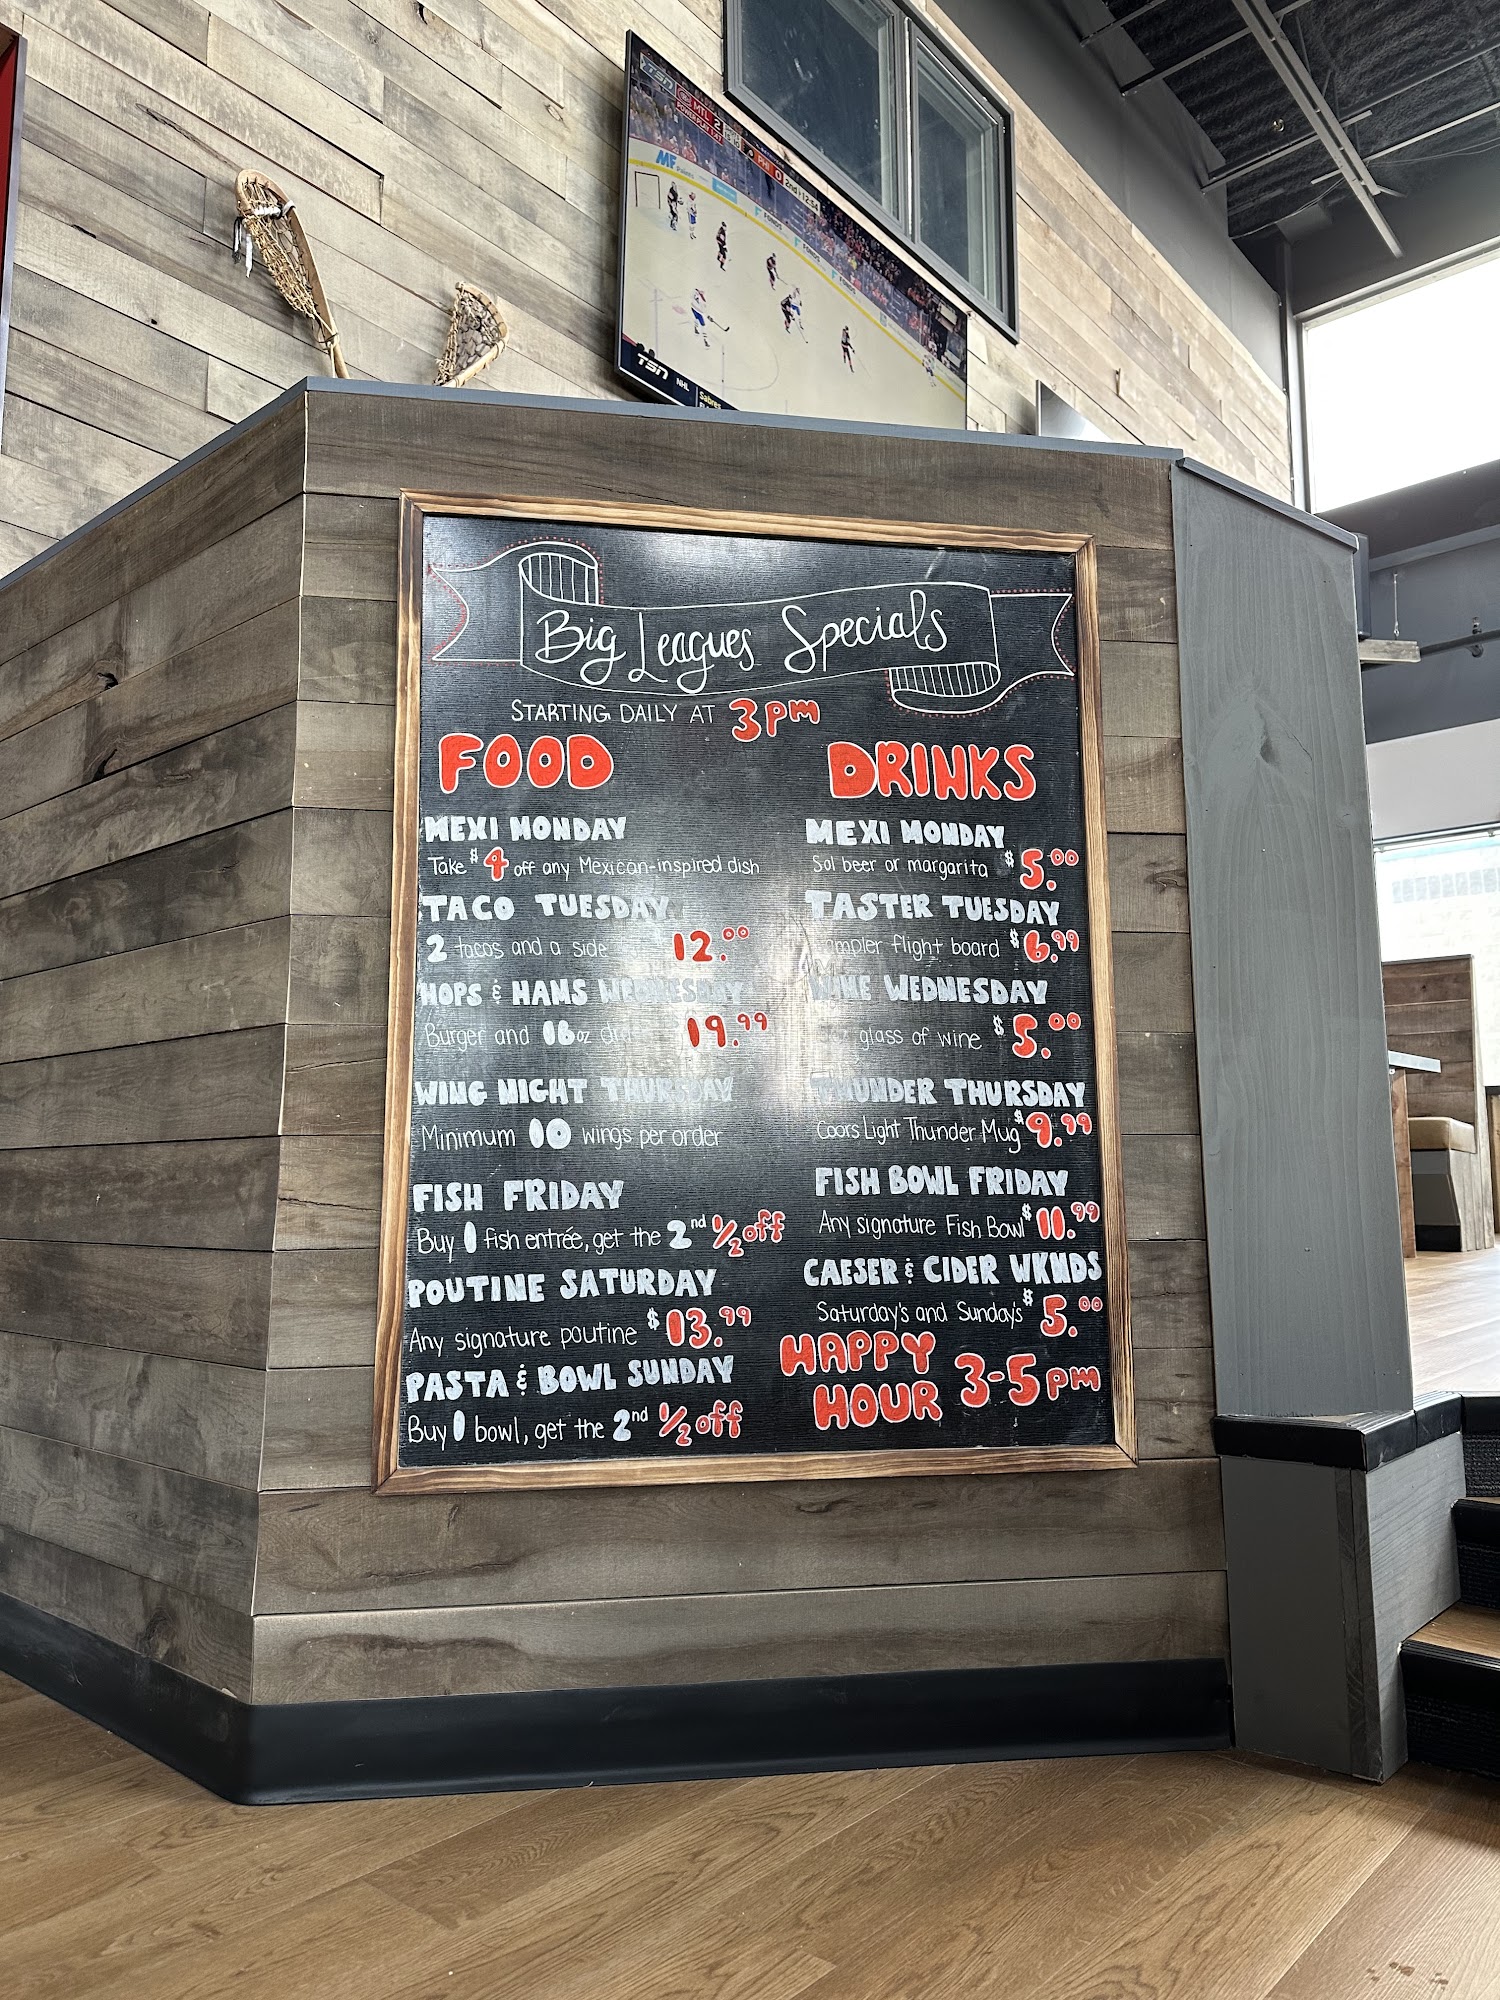 TSN
MTL 2
PHI 0 2nd 12:54
POWER PLAY
MF
TSN NHL Sabres
Big Leagues Specials
STARTING DAILY AT 3pm
FOOD
MEXI MONDAY
Take $4 off any Mexican-inspired dish
TACO TUESDAY
2 tacos and a side 12.00
HOPS & HANS WEDNESDAY
Burger and 16oz 19.99
WING NIGHT THURSDAY
Minimum 10 wings per order
FISH FRIDAY
Buy 1 fish entrée, get the 2nd 1/2 off
POUTINE SATURDAY
Any signature poutine $13.99
PASTA & BOWL SUNDAY
Buy 1 bowl, get the 2nd 1/2 off
DRINKS
MEXI MONDAY
Sol beer or margarita $5.00
TASTER TUESDAY
Sampler flight board $6.99
WINE WEDNESDAY
glass of wine $5.00
THUNDER THURSDAY
Coors Light Thunder Mug $9.99
FISH BOWL FRIDAY
Any signature Fish Bowl $11.99
CAESER & CIDER WKNDS
Saturday's and Sunday's $5.00
HAPPY HOUR 3-5pm